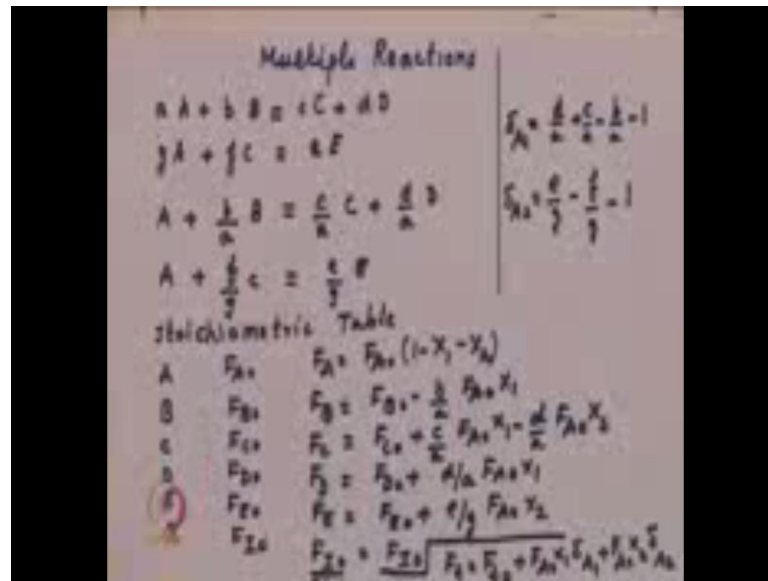 Multiple Reactions
aA + bB = cC + dD
gA + fC = eE
A + b/a B = c/a C + d/a D
A + f/g C = e/g E
δA1 = d/a + c/a - b/a - 1
δA2 = e/g - f/g - 1
Stoichiometric Table
A FA0 FA = FA0 (1-X1-X2)
B FB0 FB = FB0 - b/a FA0 X1
C FC0 FC = FC0 + c/a FA0 X1 - d/a FA0 X2
D FD0 FD = FD0 + d/a FA0 X1
E FE0 FE = FE0 + e/g FA0 X2
FI0 FI0 = FI0 Ft = Ft0 + FA0 X1 δA1 + FA0 X2 δA2